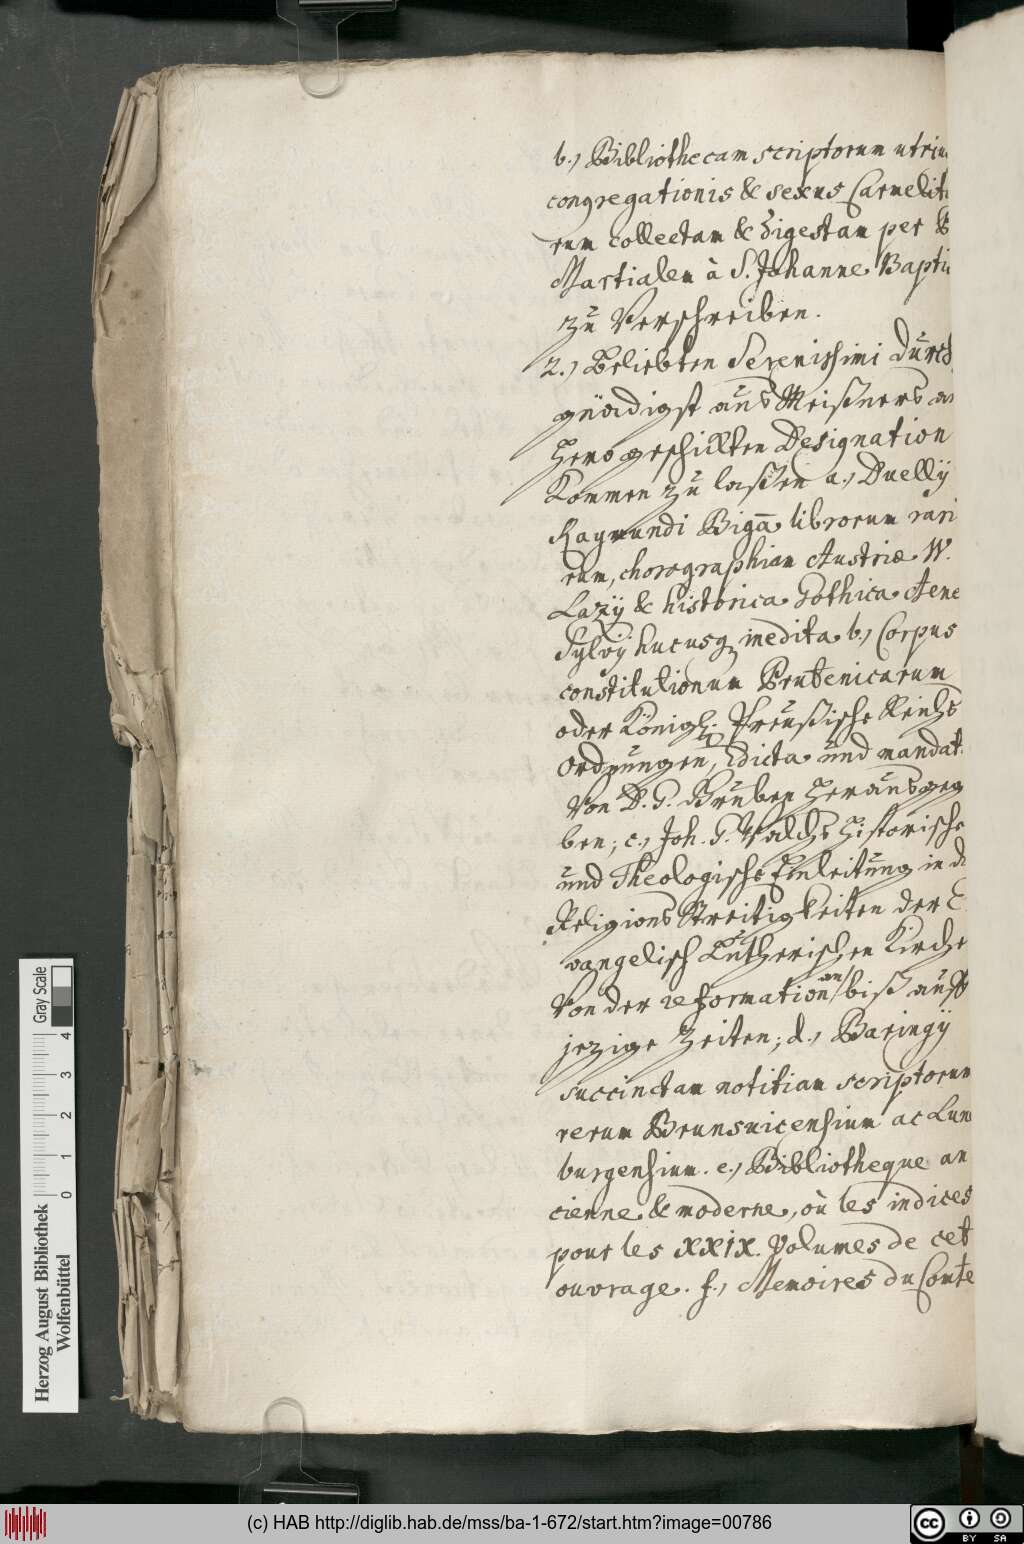 b., Bibliothecam scriptorum utriu
congregationis & sexus Carmelit
rum collectam & digestam per
Martialem à S. Johanne Bapti
zu Verschreiben.
2., Beliebten Serenissimi Durch
gnädigst aus Meißners
hero geschickten Designation
Kommen zu laßen a., Duellij
Raymundi Bigā librorum rari
rum, chorographiam Austriæ W.
Lazij & historica Gothica Aene
Sylvij hucusq inedita b., Corpus
constitutionum Prutenicarum
oder Königl. Preußische Reichs
Ordnungen, edicta und mandat
von D. G. Gruben heraus geg
ben; c., Joh. G. Walchs Historische
und Theologische Einleitung in d
Religions Streitigkeiten der E
vangelisch Lutherischen Kirche
Von der reformation an biß auff
jezige Zeiten; d., Baringij
succinctam notitiam scriptorum
rerum Brunsuicensium ac Lun
burgensium. e., Bibliotheque an
cienne & moderne, où les indices
pour les XXIX. Volumes de cet
ouvrage. f., Memoires du Comte
Herzog August Bibliothek
Wolfenbüttel
0 1 2 3 4
Gray Scale
(c) HAB http://diglib.hab.de/mss/ba-1-672/start.htm?image=00786
cc BY SA